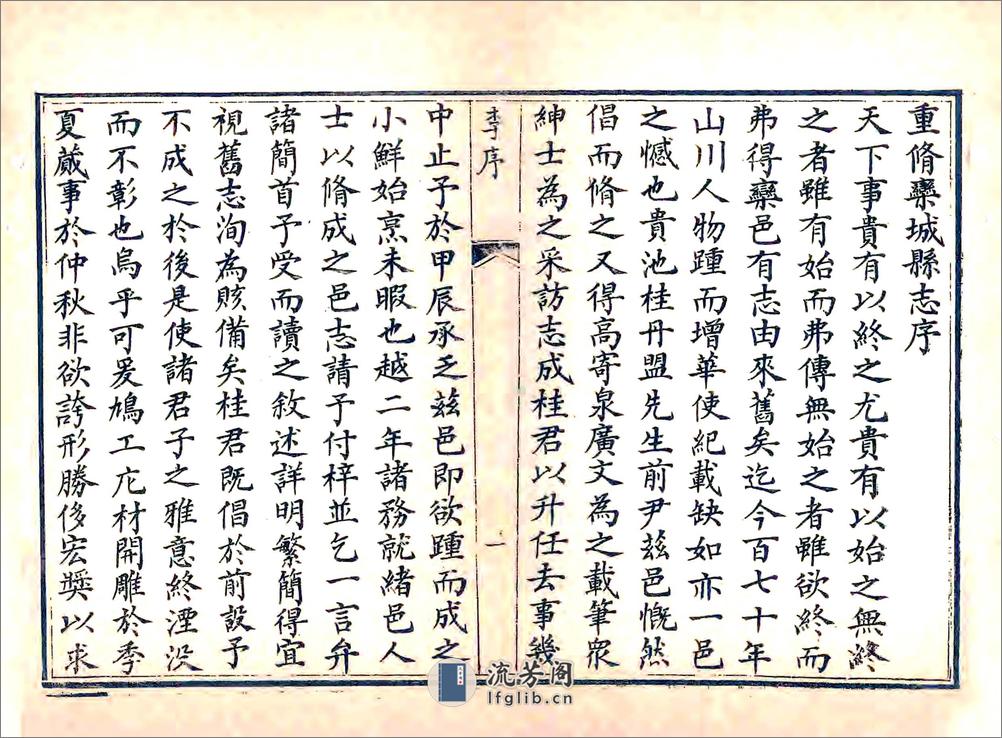 重脩欒城縣志序
天下事貴有以終之尤貴有以始之無終
之者雖有始而弗傳無始之者雖欲終而
弗得欒邑有志由來舊矣迄今百七十年
山川人物踵而增華使紀載缺如亦一邑
之憾也貴池桂丹盟先生前尹茲邑慨然
倡而脩之又得高寄泉廣文為之載筆眾
紳士為之采訪志成桂君以升任去事幾
李序
一
中止予於甲辰承乏茲邑即欲踵而成之
小鮮始烹未暇也越二年諸務就緒邑人
士以脩成之邑志請予付梓並乞一言弁
諸簡首予受而讀之敘述詳明繁簡得宜
視舊志洵為賅備矣桂君既倡於前設予
不成之於後是使諸君子之雅意終湮沒
而不彰也烏乎可爰鳩工庀材開雕於季
夏蕆事於仲秋非欲誇形勝侈宏奬以求
流芳阁
lfglib.cn